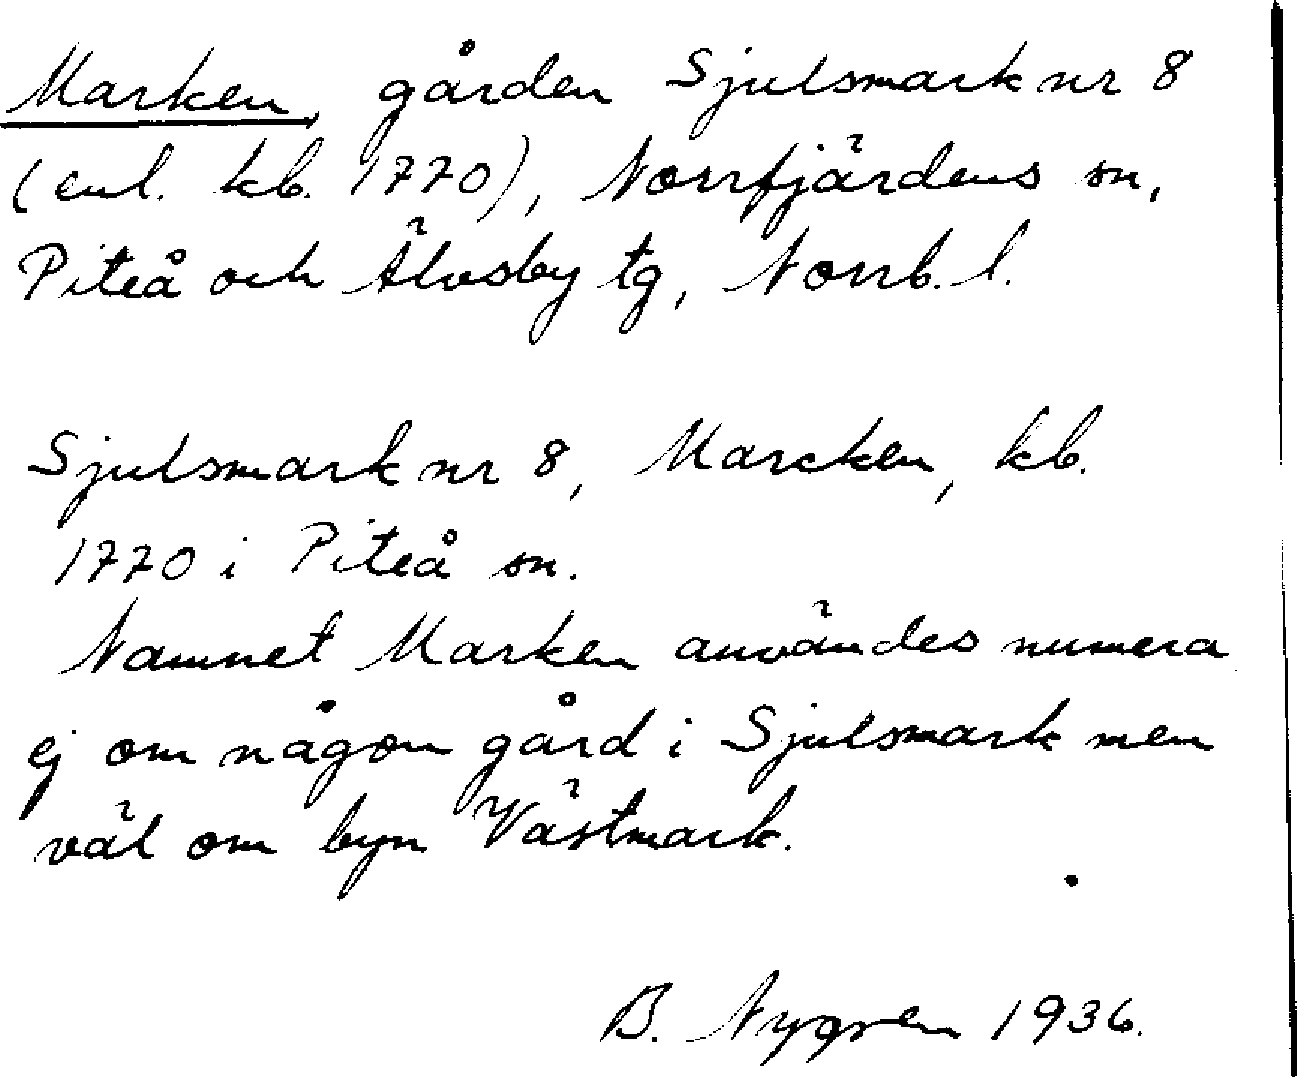 Marken, gården Sjulsmark nr 8
(enl. kb. 1770), Norrfjärdens sn,
Piteå och Älvsby tg, Norrb. l.
Sjulsmark nr 8, Marcken, kb.
1770 i Piteå sn.
Namnet Marken användes numera
ej om någon gård i Sjulsmark men
väl om byn Västmark.
B. Nygren 1936.